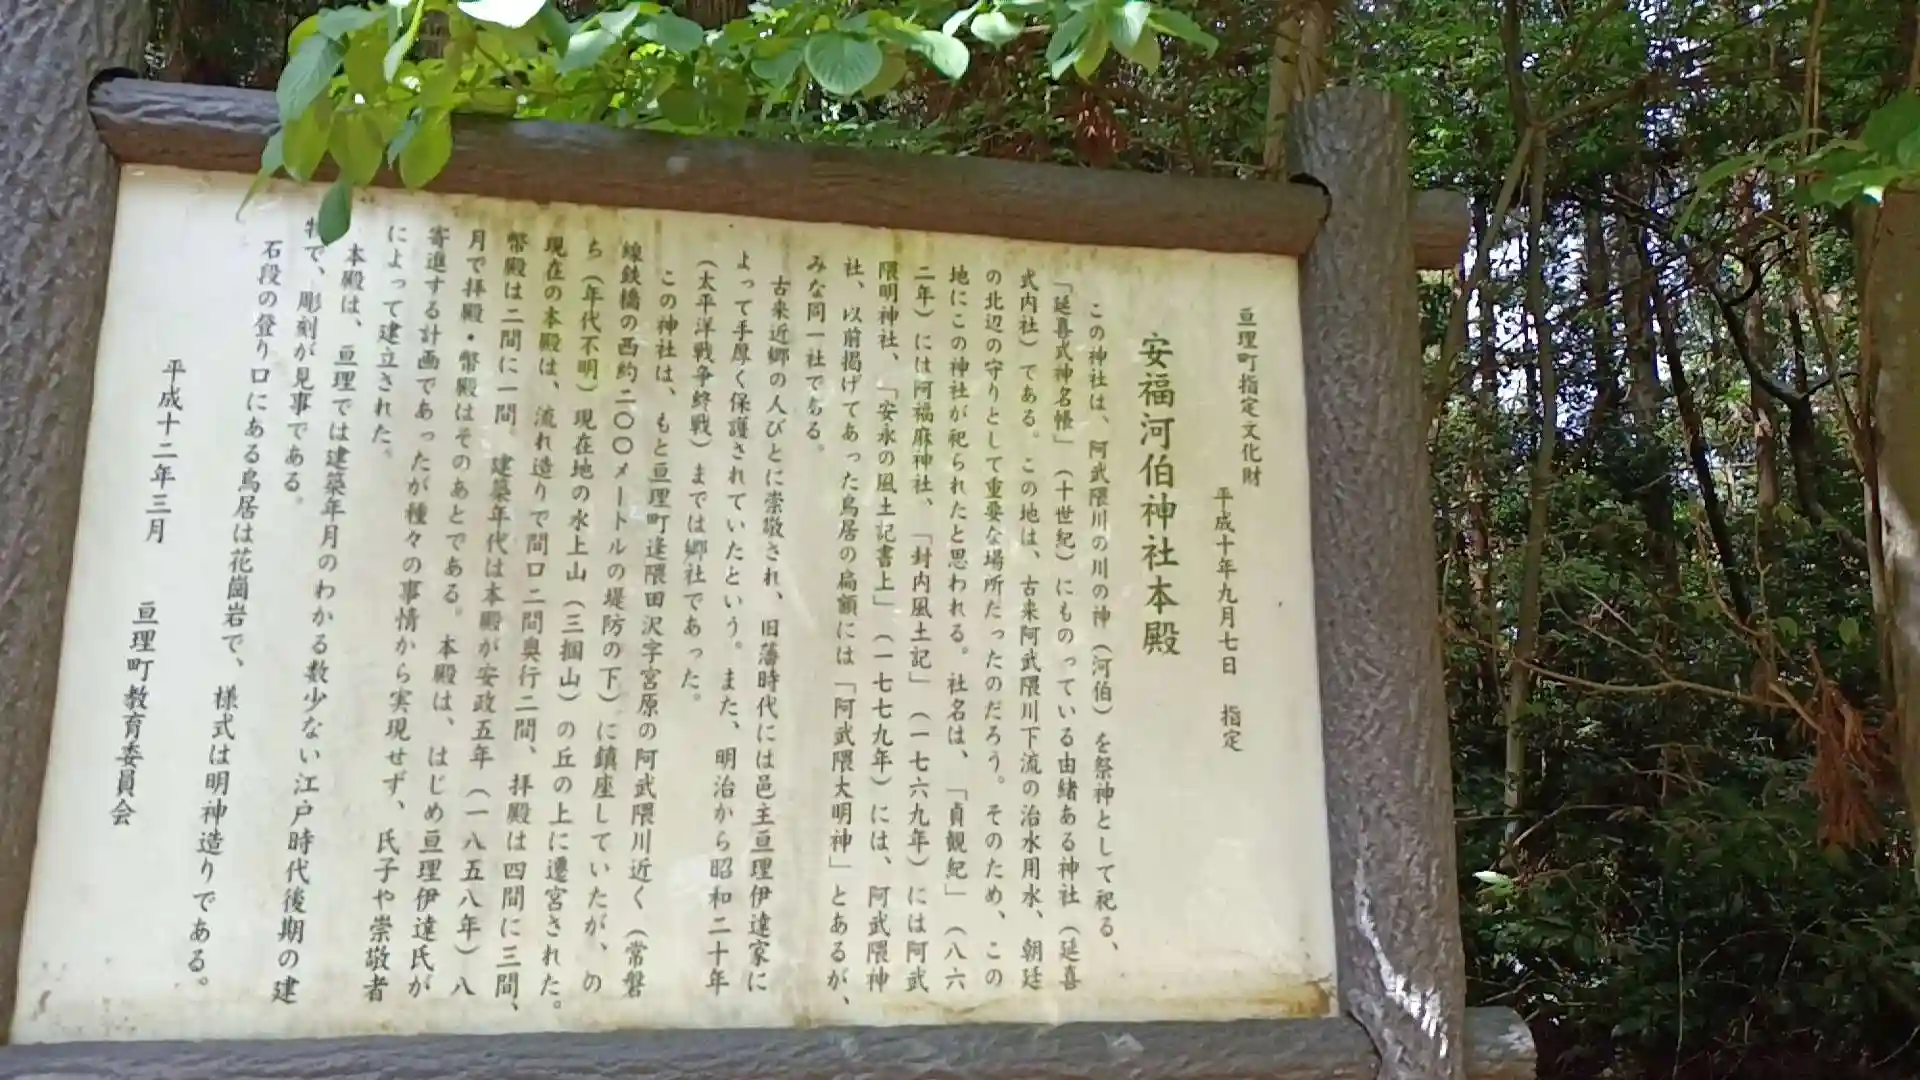 亘理町指定文化財
平成十年九月七日　指定
安福河伯神社本殿
この神社は、阿武隈川の川の神（河伯）を祭神として祀る、
「延喜式神名帳」（十世紀）にものっている由緒ある神社（延喜
式内社）である。この地は、古来阿武隈川下流の治水用水、朝廷
の北辺の守りとして重要な場所だったのだろう。そのため、この
地にこの神社が祀られたと思われる。社名は、「貞観紀」（八六
二年）には阿福麻神社、「封内風土記」（一七六九年）には阿武
隈明神社、「安永の風土記書上」（一七七九年）には、阿武隈神
社、以前掲げてあった鳥居の扁額には「阿武隈大明神」とあるが、
みな同一社である。
古来近郷の人びとに崇敬され、旧藩時代には邑主亘理伊達家に
よって手厚く保護されていたという。また、明治から昭和二十年
（太平洋戦争終戦）までは郷社であった。
この神社は、もと亘理町逢隈田沢字宮原の阿武隈川近く（常磐
線鉄橋の西約二〇〇メートルの堤防の下）に鎮座していたが、の
ち（年代不明）現在地の水上山（三掴山）の丘の上に遷宮された。
現在の本殿は、流れ造りで間口二間奥行二間、拝殿は四間に三間、
幣殿は二間に一間。建築年代は本殿が安政五年（一八五八年）八
月で拝殿・幣殿はそのあとである。本殿は、はじめ亘理伊達氏が
寄進する計画であったが種々の事情から実現せず、氏子や崇敬者
によって建立された。
本殿は、亘理では建築年月のわかる数少ない江戸時代後期の建
物で、彫刻が見事である。
石段の登り口にある鳥居は花崗岩で、様式は明神造りである。
平成十二年三月
亘理町教育委員会